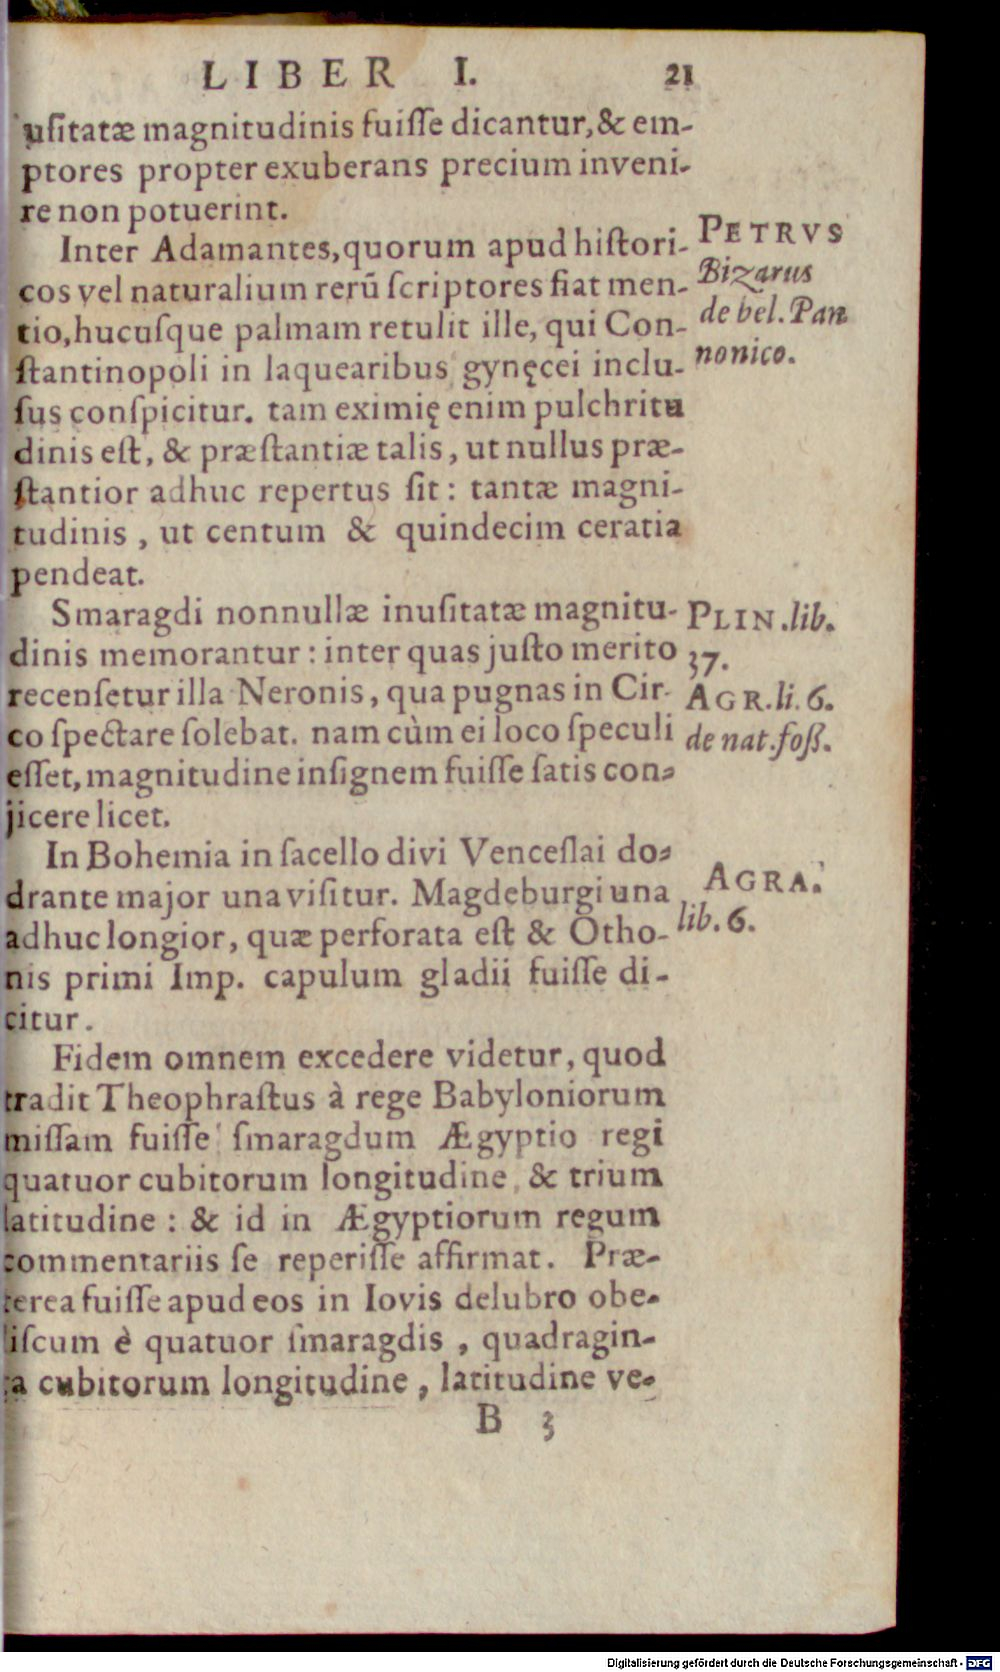 LIBER I. 21
usitatæ magnitudinis fuiſſe dicantur, & em-
ptores propter exuberans precium inveni-
re non potuerint.
Inter Adamantes, quorum apud hiſtori-
cos vel naturalium rerū ſcriptores fiat men-
tio, hucuſque palmam retulit ille, qui Con-
ſtantinopoli in laquearibus gynęcei inclu-
ſus conſpicitur. tam eximię enim pulchritu
dinis eſt, & præſtantiæ talis, ut nullus præ-
ſtantior adhuc repertus ſit: tantæ magni-
tudinis, ut centum & quindecim ceratia
pendeat.
PETRVS
Bizarus
de bel. Pan
nonico.
Smaragdi nonnullæ inuſitatæ magnitu-
dinis memorantur: inter quas juſto merito
recenſetur illa Neronis, qua pugnas in Cir-
co ſpectare ſolebat. nam cùm ei loco ſpeculi
eſſet, magnitudine inſignem fuiſſe ſatis con-
jicere licet.
PLIN. lib.
37.
AGR. li. 6.
de nat. foß.
In Bohemia in ſacello divi Venceſlai do-
drante major una viſitur. Magdeburgi una
adhuc longior, quæ perforata eſt & Otho-
nis primi Imp. capulum gladii fuiſſe di-
citur.
AGRA.
lib. 6.
Fidem omnem excedere videtur, quod
tradit Theophraſtus à rege Babyloniorum
miſſam fuiſſe ſmaragdum Ægyptio regi
quatuor cubitorum longitudine, & trium
latitudine: & id in Ægyptiorum regum
commentariis ſe reperiſſe affirmat. Præ-
terea fuiſſe apud eos in Iovis delubro obe-
liſcum è quatuor ſmaragdis, quadragin-
ta cubitorum longitudine, latitudine ve-
B 3
Digitalisierung gefördert durch die Deutsche Forschungsgemeinschaft - DFG